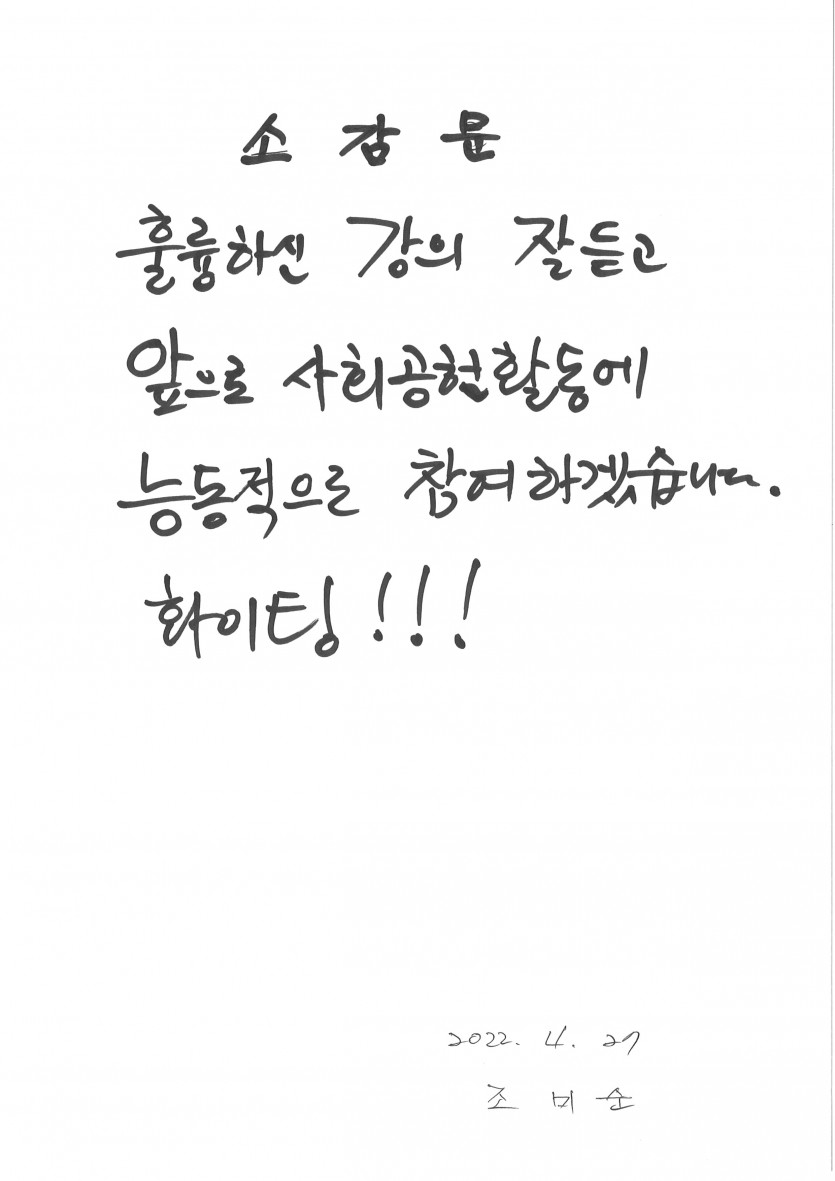 소 감 문
훌륭하신 강의 잘듣고
앞으로 사회공헌활동에
능동적으로 참여하겠습니다.
화이팅!!!
2022. 4. 27
조 미 순